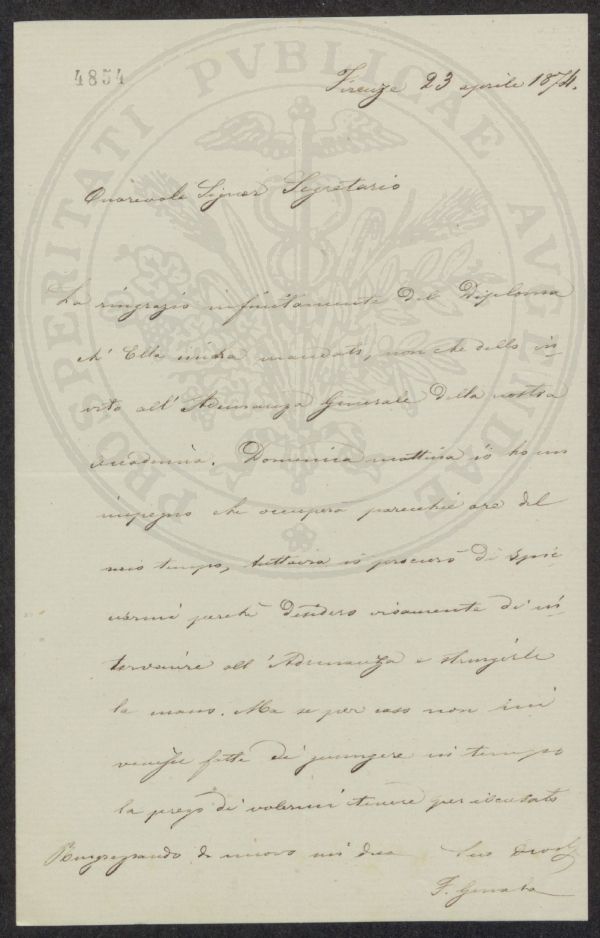 4854
Firenze 23 aprile 1874.
Onorevole Signor Segretario
La ringrazio infinitamente del Diploma
ch' Ella mandato, non che dello in-
vito all' Adunanza Generale della nostra
Accademia. Domenica mattina io ho un
impegno che occuperà parecchie ore del
mio tempo, tuttavia io procurerò di spic
ciarmi perchè desidero vivamente di in-
tervenire all' Adunanza e stringerle
la mano. Ma se per caso non mi
venisse fatto di giungere in tempo
la prego di volermi tenere per iscusato
Ringraziando di nuovo mi dica Suo
F. Genala
PROSPERITATI PVBLICAE AVGENDAE